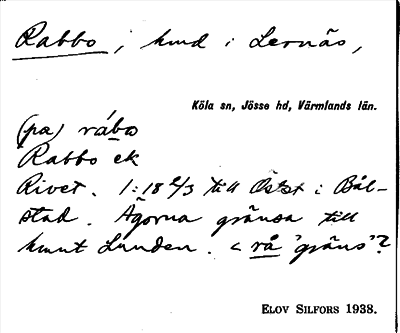 Rabbo, hmd i Lernäs,
Köla sn, Jösse hd, Värmlands län.
(pa) rábω
Rabbo ek
Rivet. 1:18 2/3 till Östst i Bål-
stad. Ägorna gränsa till
hmnt Lunden. < rå "gräns"?
ELOV SILFORS 1938.